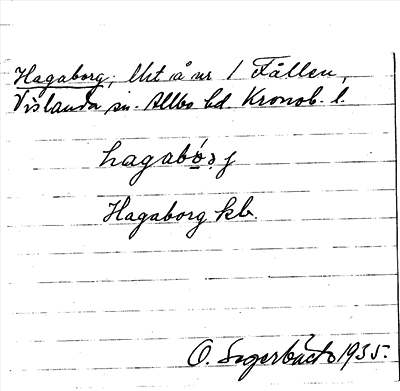 Hagaborg; lht å nr 1 Fållen,
Vislanda sn. Allbo hd. Kronob. l.
hagabo̱rj
Hagaborg kb.
O. 1935.